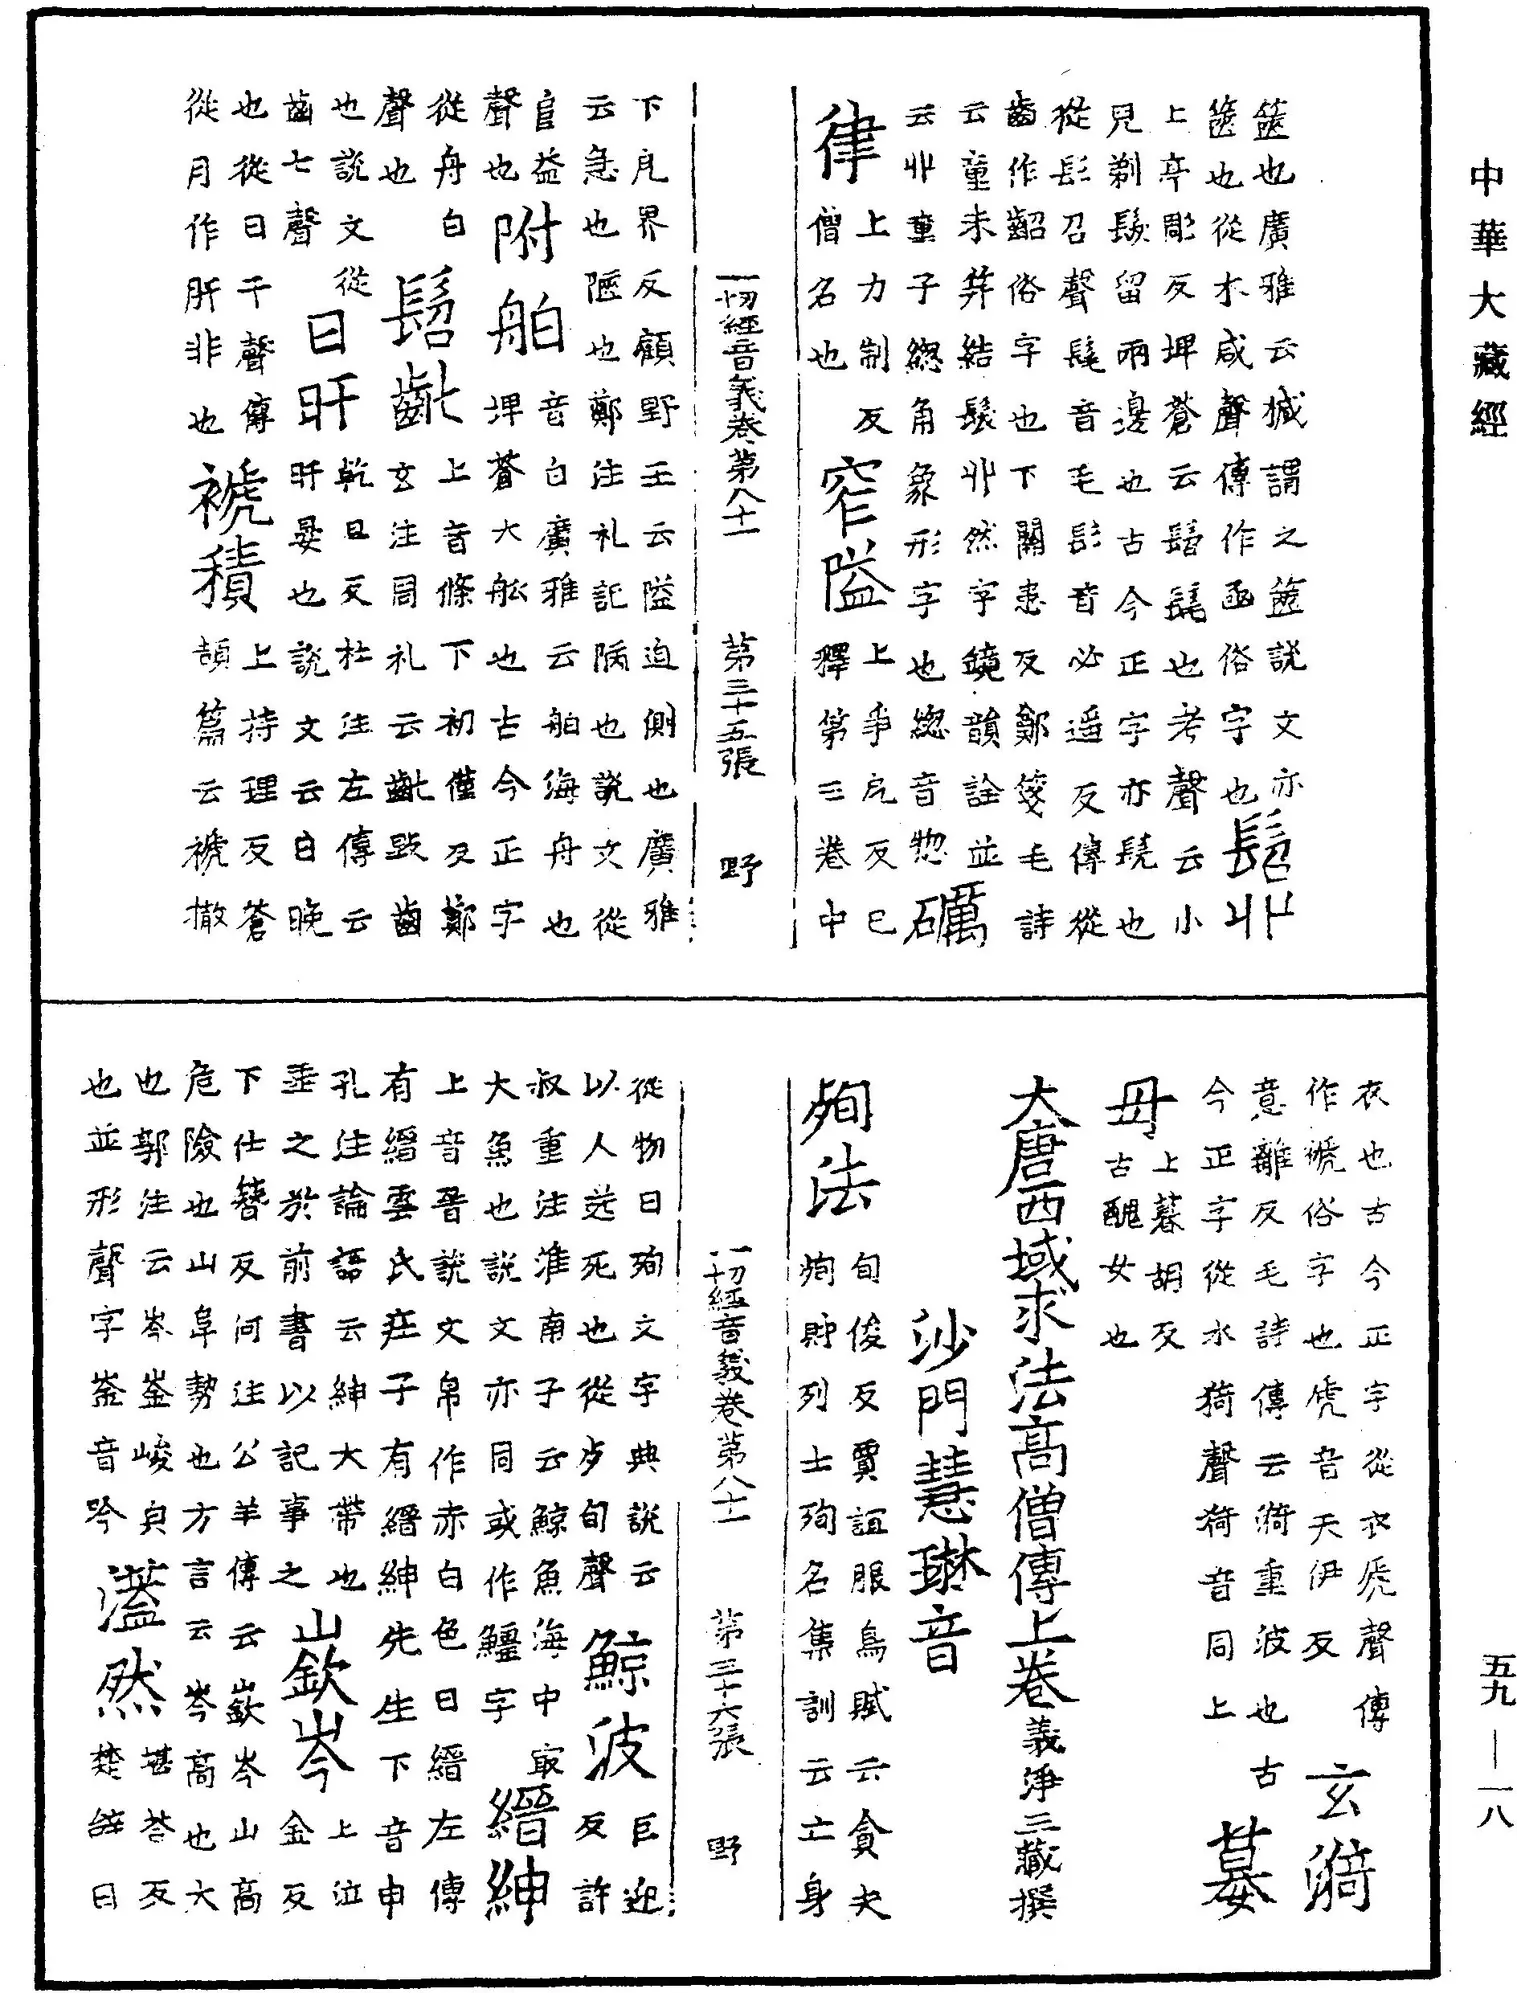 中華大藏經
篋也廣雅云摵謂之篋說文亦
篋也從木咸聲傳作函俗字也髫丱
上亭彫反埤蒼云髫髦也考聲云小
兒剃髮留兩邊也古今正字亦髡也
從髟召聲髦音毛髟音必遥反傳從
齒作齠俗字也下關患反鄭箋毛詩
云童未筓結髮丱然字鏡韻詮並
云丱童子緫角象形字也緫音惣礪
律上力制反
僧名也窄隘上爭戹反巳
釋第三卷中
一切經音義卷第八十一 第三十五張 野
下戹界反顧野王云隘迫側也廣雅
云急也陋也鄭注礼記陿也說文從
𨸏益聲也附舶音白廣雅云舶海舟也
埤蒼大舩也古今正字
從舟白聲也髫齔上音條下初僅反鄭
玄注周礼云齔毀齒
也說文從齒七聲日旰乾旦反杜注左傳云
旰晏也說文云日晚
也從日干聲傳從月作肝非也褫積上持理反蒼
頡篇云褫撤
衣也古今正字從衣虒聲傳
作褫俗字也虒音天伊反玄漪
意離反毛詩傳云漪重波也古
今正字從水猗聲猗音同上墓
毋上暮胡反
古醜女也
大唐西域求法高僧傳上卷 義淨三藏撰
沙門慧琳音
殉法旬俊反賈誼服鳥賦云貪夫
殉財列士殉名集訓云亡身
一切經音義卷第八十一 第三十六張 野
從物曰殉文字典說云
以人送死也從歹旬聲鯨波巨迎反許
叔重注淮南子云鯨魚海中㝡
大魚也說文亦同或作䲔字縉紳
上音晉說文帛作赤白色曰縉左傳
有縉雲氏莊子有縉紳先生下音申
孔注論語云紳大帶也上泣
垂之於前書以記事之嶔岑金反
下仕簪反何注公羊傳云嶔岑山高
危險也山阜勢也方言云岑高也大
也郭注云岑崟峻皃
也並形聲字崟音吟溘然堪荅反
楚辞曰
五九—一八